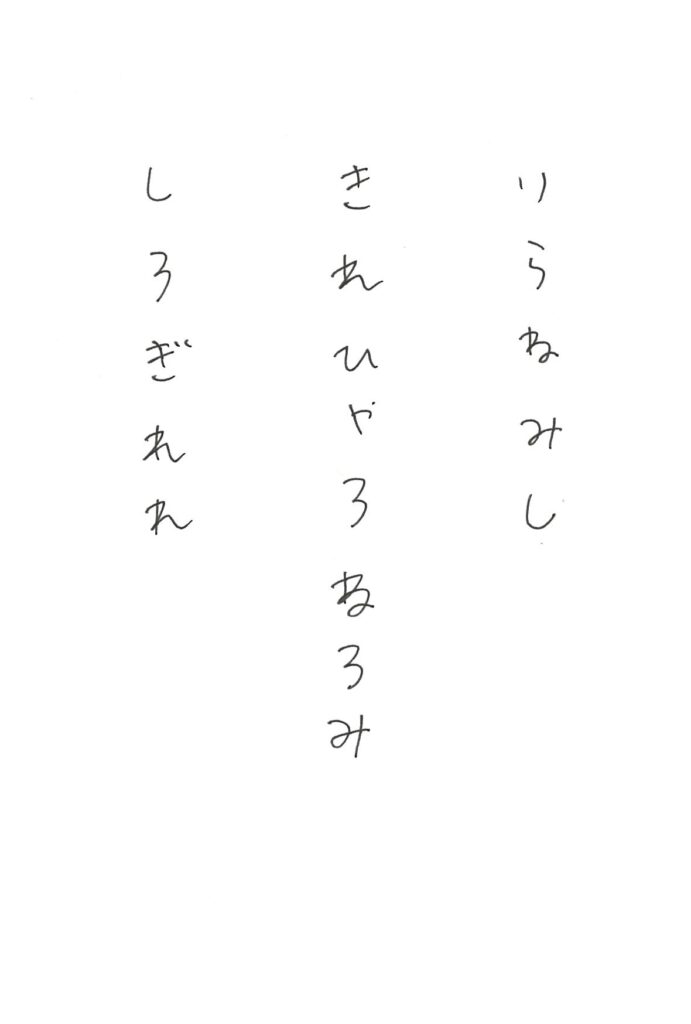 りらねみし
きれひゃろねろみ
しろぎれれ